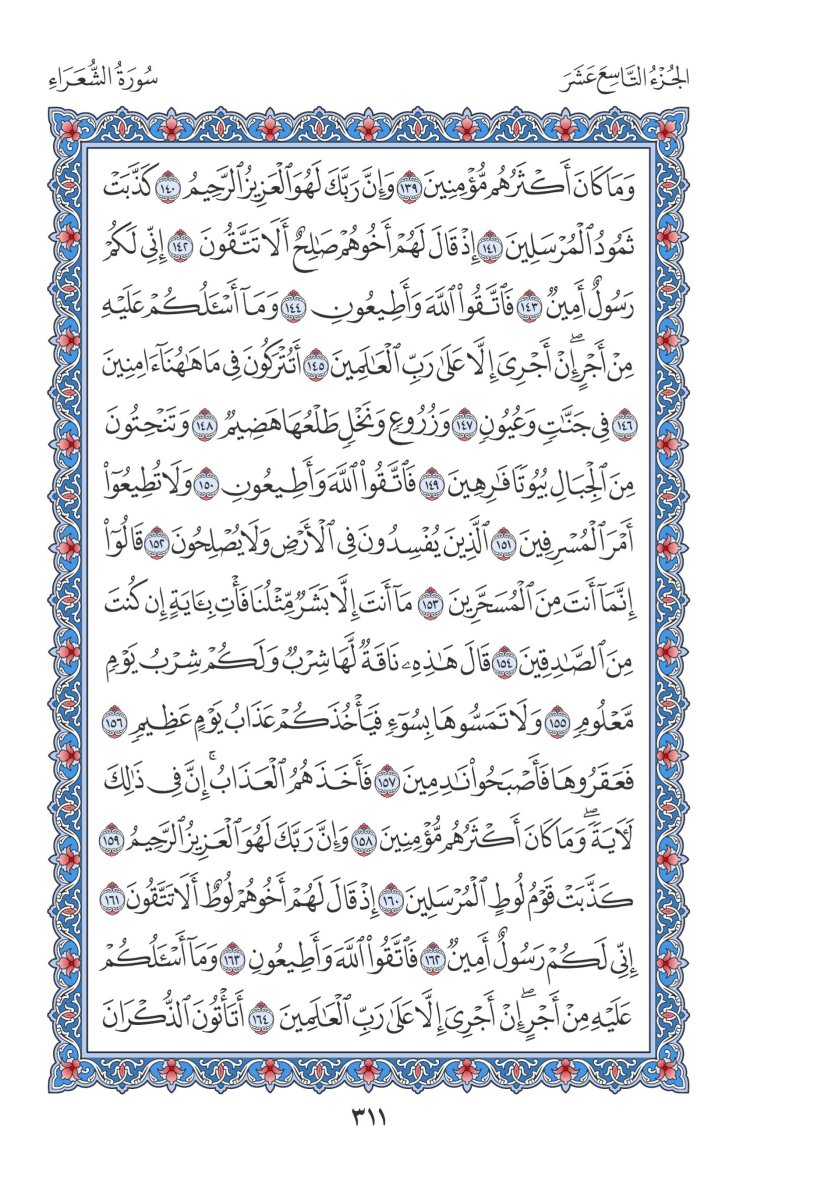 الجُزْءُ التَّاسِعَ عَشَرَ
سُورَةُ الشُّعَرَاءِ
وَمَا كَانَ أَكْثَرُهُم مُّؤْمِنِينَ ١٣٩ وَإِنَّ رَبَّكَ لَهُوَ ٱلْعَزِيزُ ٱلرَّحِيمُ ١٤٠ كَذَّبَتْ
ثَمُودُ ٱلْمُرْسَلِينَ ١٤١ إِذْ قَالَ لَهُمْ أَخُوهُمْ صَٰلِحٌ أَلَا تَتَّقُونَ ١٤٢ إِنِّى لَكُمْ
رَسُولٌ أَمِينٌ ١٤٣ فَٱتَّقُوا۟ ٱللَّهَ وَأَطِيعُونِ ١٤٤ وَمَآ أَسْـَٔلُكُمْ عَلَيْهِ
مِنْ أَجْرٍ ۖ إِنْ أَجْرِىَ إِلَّا عَلَىٰ رَبِّ ٱلْعَٰلَمِينَ ١٤٥ أَتُتْرَكُونَ فِى مَا هَٰهُنَآ ءَامِنِينَ
١٤٦ فِى جَنَّٰتٍ وَعُيُونٍ ١٤٧ وَزُرُوعٍ وَنَخْلٍ طَلْعُهَا هَضِيمٌ ١٤٨ وَتَنْحِتُونَ
مِنَ ٱلْجِبَالِ بُيُوتًا فَٰرِهِينَ ١٤٩ فَٱتَّقُوا۟ ٱللَّهَ وَأَطِيعُونِ ١٥٠ وَلَا تُطِيعُوٓا۟
أَمْرَ ٱلْمُسْرِفِينَ ١٥١ ٱلَّذِينَ يُفْسِدُونَ فِى ٱلْأَرْضِ وَلَا يُصْلِحُونَ ١٥٢ قَالُوٓا۟
إِنَّمَآ أَنتَ مِنَ ٱلْمُسَحَّرِينَ ١٥٣ مَآ أَنتَ إِلَّا بَشَرٌ مِّثْلُنَا فَأْتِ بِـَٔايَةٍ إِن كُنتَ
مِنَ ٱلصَّٰدِقِينَ ١٥٤ قَالَ هَٰذِهِۦ نَاقَةٌ لَّهَا شِرْبٌ وَلَكُمْ شِرْبُ يَوْمٍ
مَّعْلُومٍ ١٥٥ وَلَا تَمَسُّوهَا بِسُوٓءٍ فَيَأْخُذَكُمْ عَذَابُ يَوْمٍ عَظِيمٍ ١٥٦
فَعَقَرُوهَا فَأَصْبَحُوا۟ نَٰدِمِينَ ١٥٧ فَأَخَذَهُمُ ٱلْعَذَابُ ۗ إِنَّ فِى ذَٰلِكَ
لَـَٔايَةً ۖ وَمَا كَانَ أَكْثَرُهُم مُّؤْمِنِينَ ١٥٨ وَإِنَّ رَبَّكَ لَهُوَ ٱلْعَزِيزُ ٱلرَّحِيمُ ١٥٩
كَذَّبَتْ قَوْمُ لُوطٍ ٱلْمُرْسَلِينَ ١٦٠ إِذْ قَالَ لَهُمْ أَخُوهُمْ لُوطٌ أَلَا تَتَّقُونَ ١٦١
إِنِّى لَكُمْ رَسُولٌ أَمِينٌ ١٦٢ فَٱتَّقُوا۟ ٱللَّهَ وَأَطِيعُونِ ١٦٣ وَمَآ أَسْـَٔلُكُمْ
عَلَيْهِ مِنْ أَجْرٍ ۖ إِنْ أَجْرِىَ إِلَّا عَلَىٰ رَبِّ ٱلْعَٰلَمِينَ ١٦٤ أَتَأْتُونَ ٱلذُّكْرَانَ
٣١١